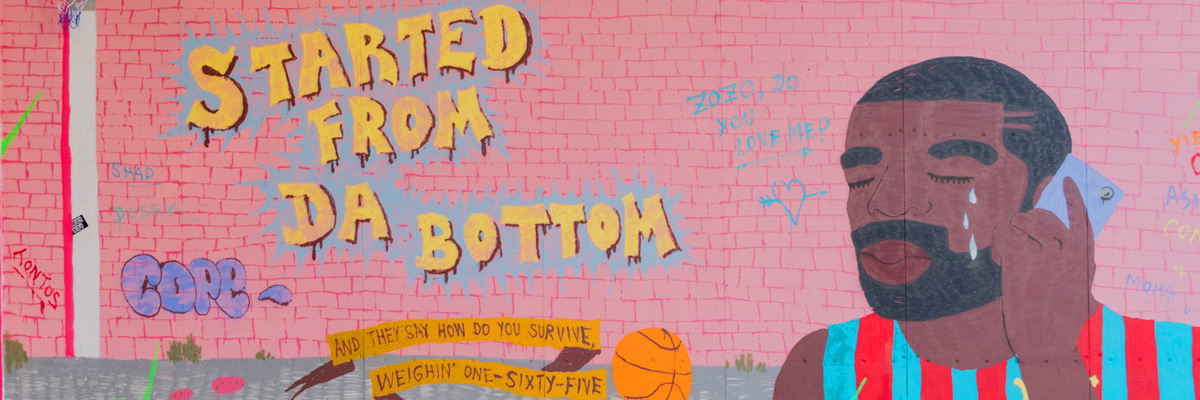 STARTED
FROM
DA BOTTOM
ZOZO, DO
YOU
LOVE ME?
SHAD
KONTOS
COPE
AND THEY SAY HOW DO YOU SURVIVE,
WEIGHIN' ONE-SIXTY-FIVE